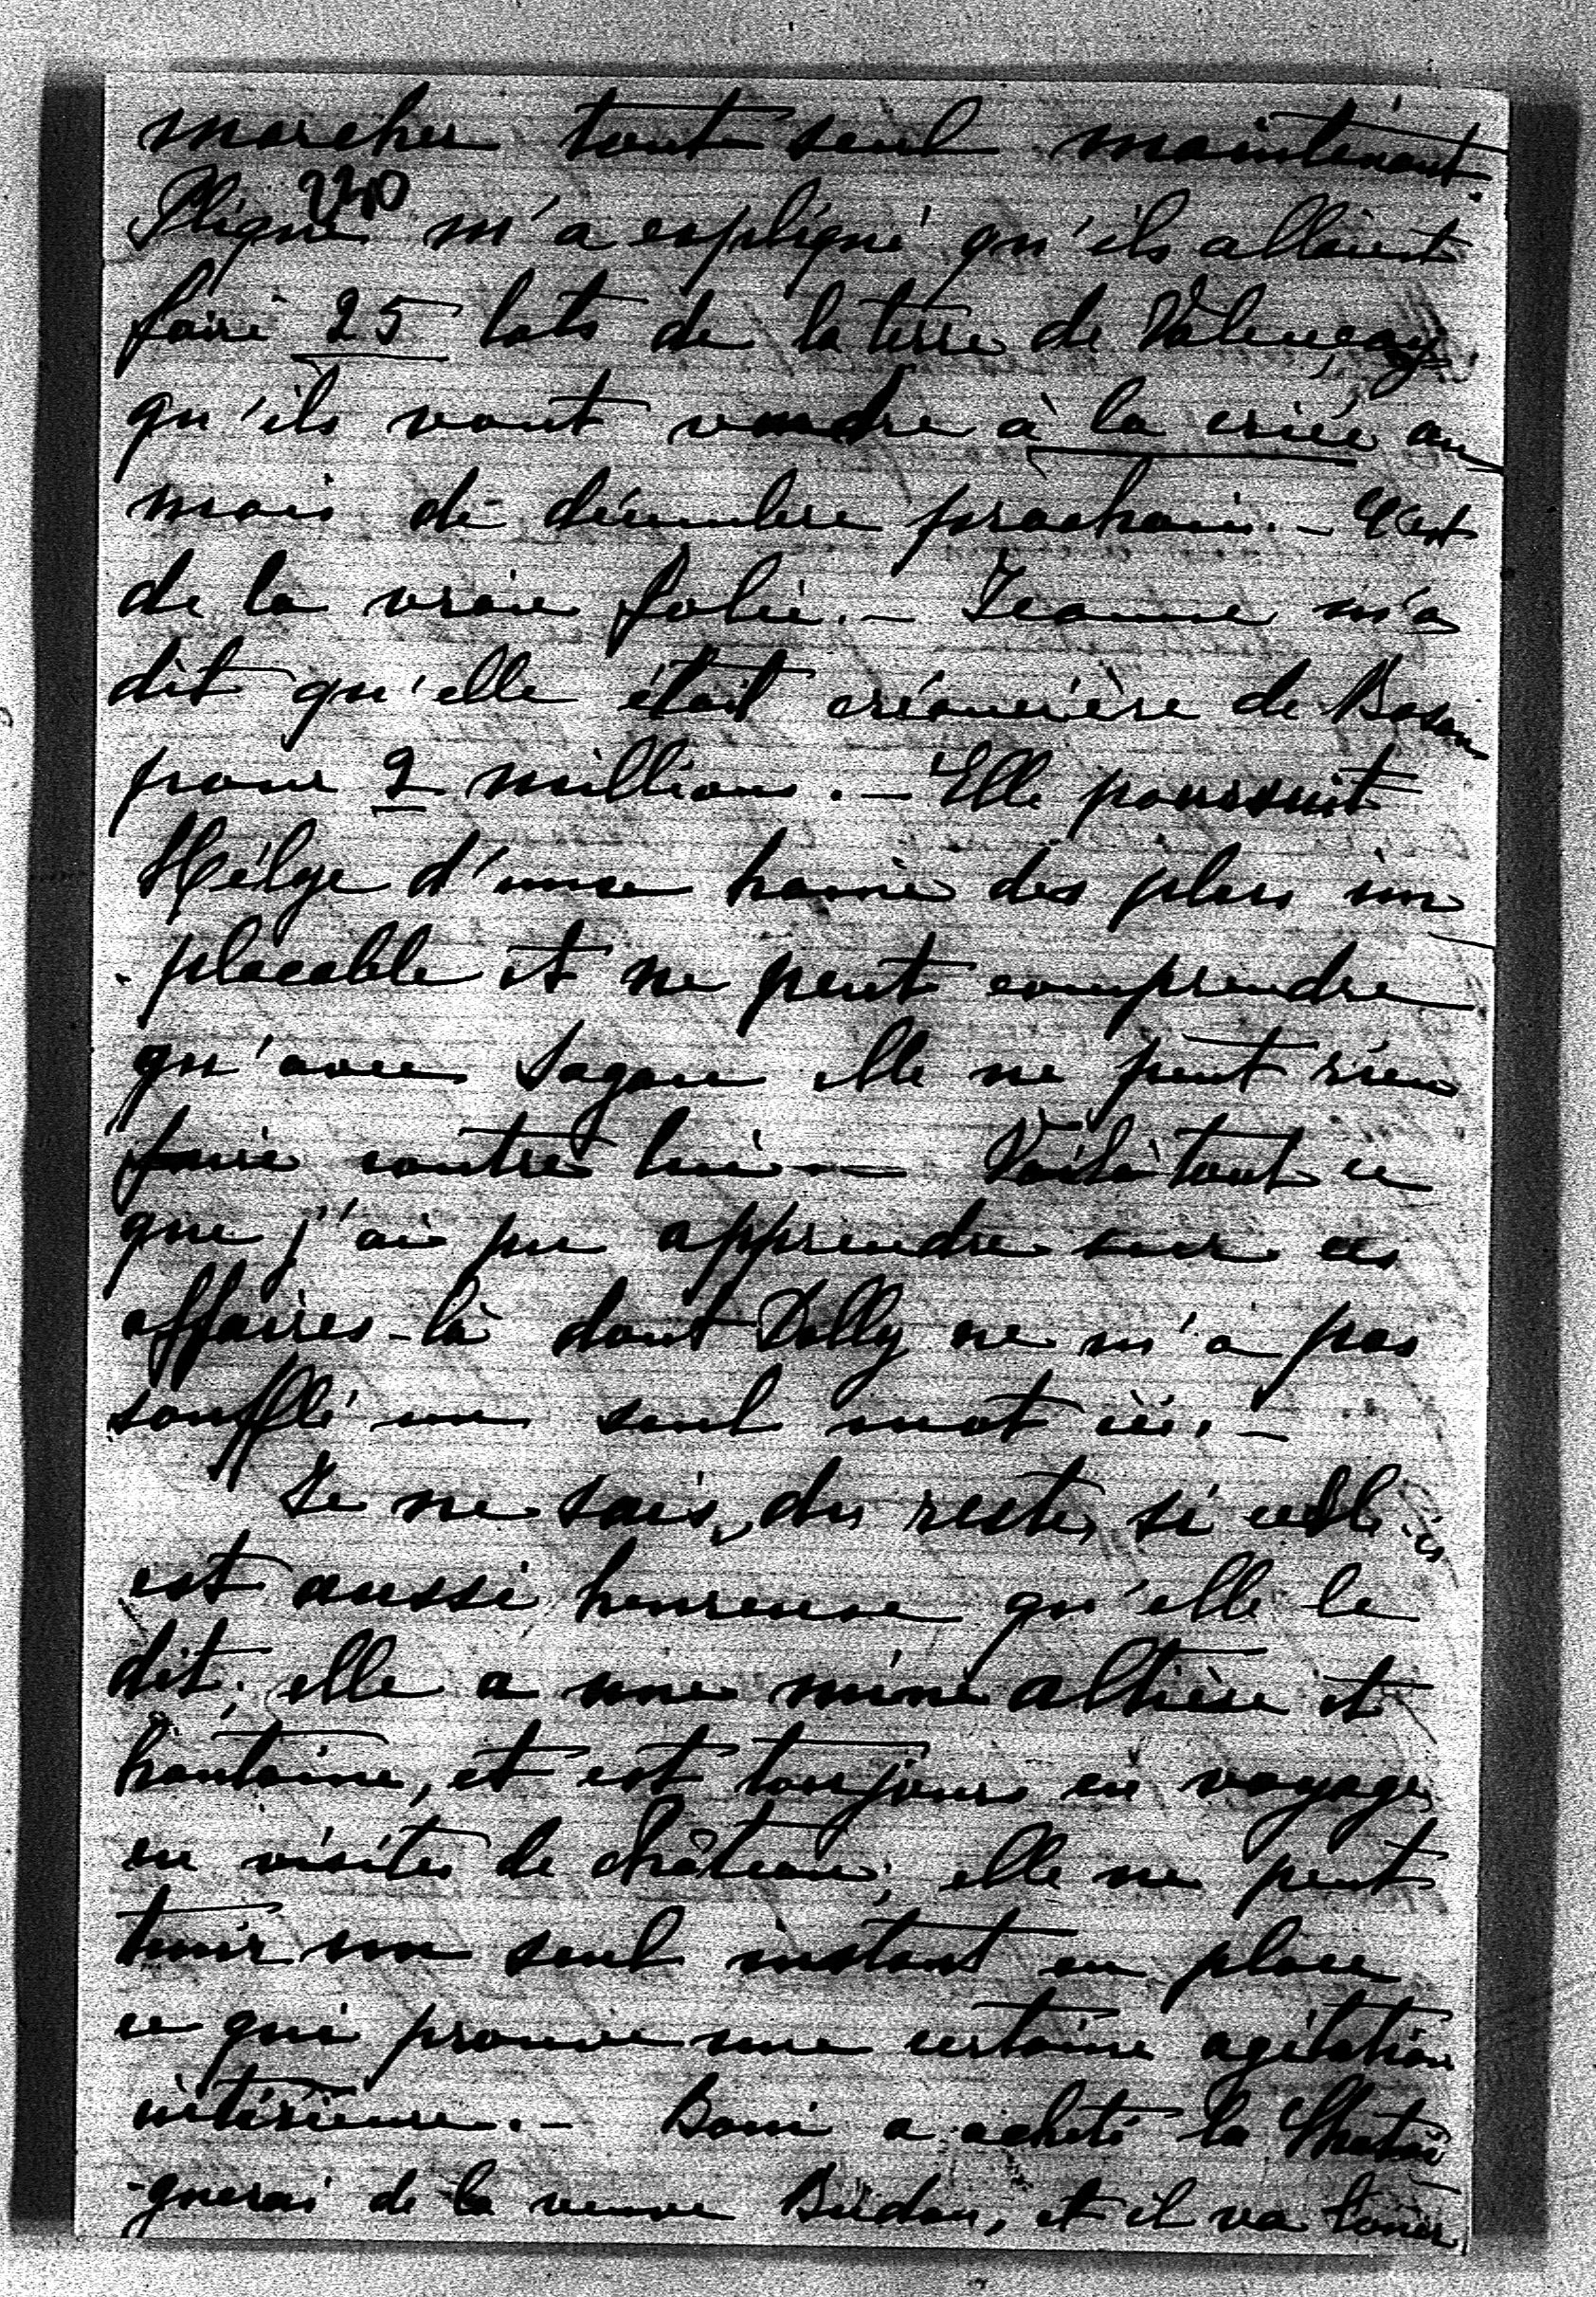 marcher tout seul maintenant.
240
m'a expliqué qu'ils allaient
faire 25 lots de la terre de Valençay
qu'ils vont vendre à la criée au
mois de décembre prochain. – C'est
de la vraie folie. – Jeanne m'a
dit qu'elle était créancière de Boson
pour 2 millions. – Elle poursuit
Hélye d'une haine des plus im
-placable et ne peut comprendre
qu'avec Sagan elle ne peut rien
faire contre lui – Voilà tout ce
que j'ai pu apprendre sur ces
affaires-là dont Dolly ne m'a pas
soufflé un seul mot ici. –
Je ne sais, du reste, si celle-ci
est aussi heureuse qu'elle le
dit; elle a une mine altière et
hautaine, et est toujours en voyage
en visites de château; elle ne peut
tenir un seul instant en place
ce qui prouve une certaine agitation
intérieure. – Boni a acheté la Chatai
-gnerai de la veuve Bridou, et il va louer